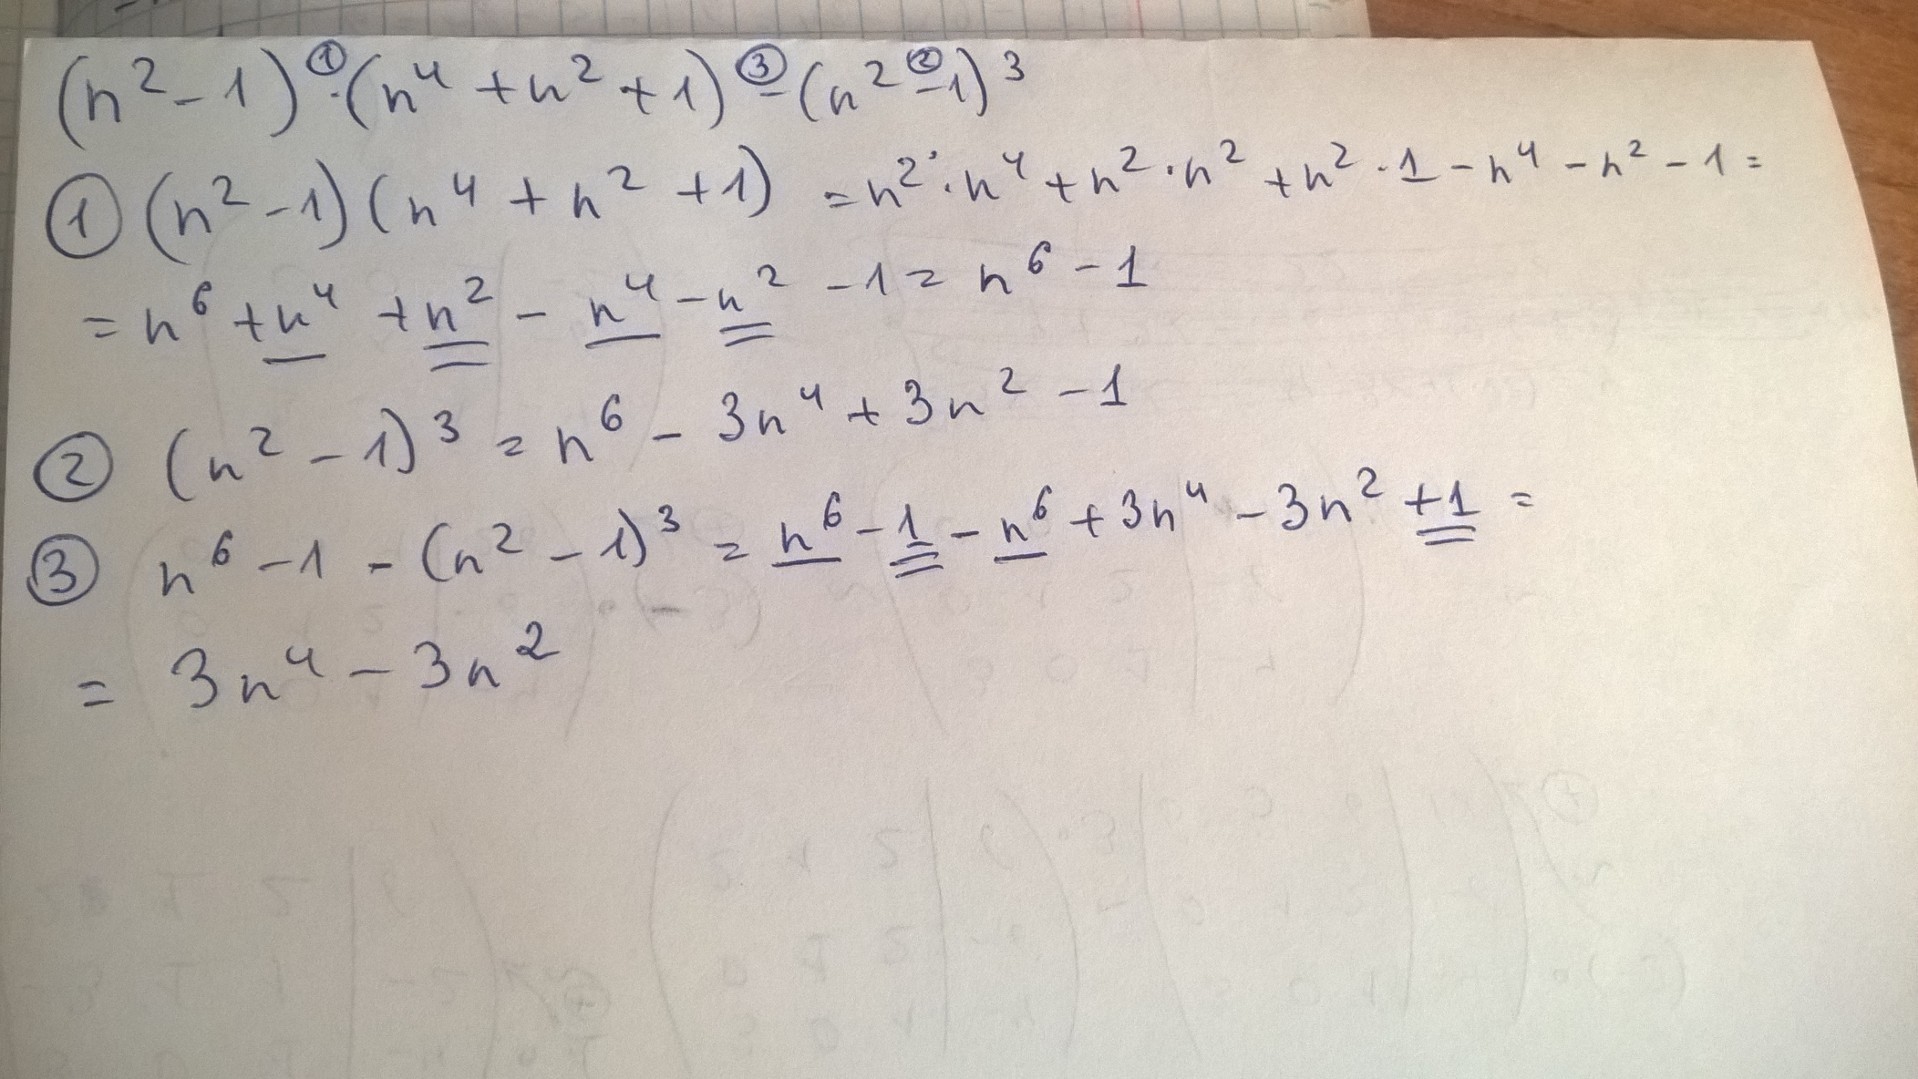 (n²-1)①·(n⁴+n²+1)③-(n²②-1)³
① (n²-1)(n⁴+n²+1) = n²·n⁴+n²·n²+n²·1-n⁴-n²-1=
=n⁶+n⁴+n²-n⁴-n²-1=n⁶-1
② (n²-1)³=n⁶-3n⁴+3n²-1
③ n⁶-1-(n²-1)³=n⁶-1-n⁶+3n⁴-3n²+1=
= 3n⁴-3n²